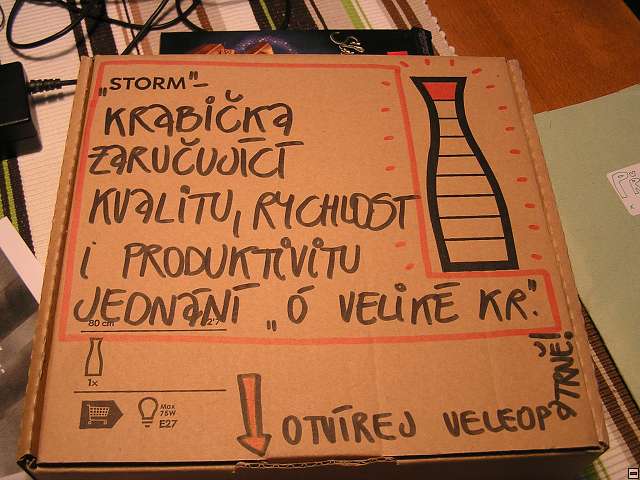 „STORM"–
KRABIČKA
ZARUČUJÍCÍ
KVALITU, RYCHLOST
I PRODUKTIVITU
JEDNÁNÍ „Ó VELIKÉ KR."
80 cm 2'7
1x
Max
75W
E27
OTVÍREJ VELEOPATRNĚ!